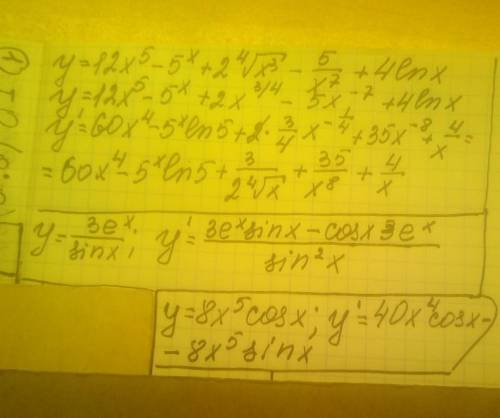 y=12x⁵-5ˣ+2⁴√x³ - 5/x⁷ +4lnx
y=12x⁵-5ˣ+2x^3/4 - 5x⁻⁷ +4lnx
y'=60x⁴-5ˣln5+2·3/4 x^-1/4 +35x⁻⁸+ 4/x =
=60x⁴-5ˣln5+ 3/2⁴√x + 35/x⁸ + 4/x
y= 3eˣ/sinx; y'= 3eˣsinx-cosx3eˣ/sin²x
y=8x⁵cosx; y'=40x⁴cosx-
-8x⁵sinx